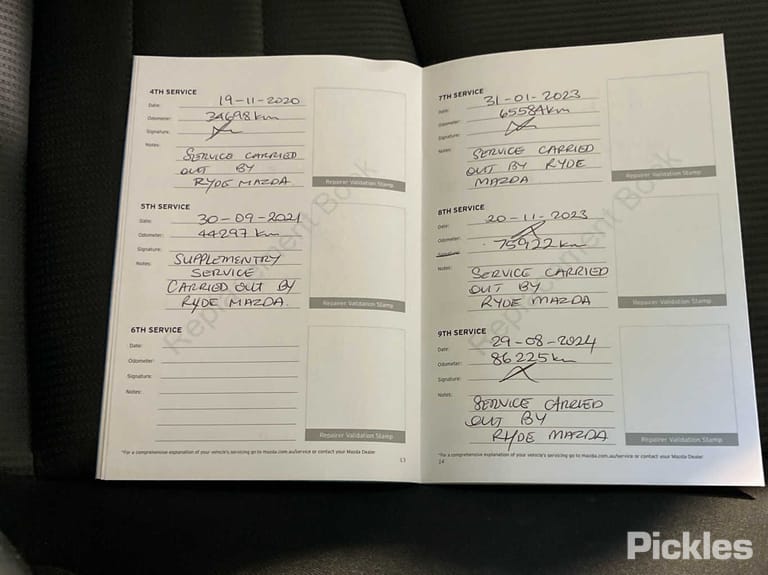 4TH SERVICE
Date: 19-11-2020
Odometer: 34698km
Signature:
Notes:
SERVICE CARRIED
OUT BY
RYDE MAZDA
Repairer Validation Stamp
5TH SERVICE
Date: 30-09-2021
Odometer: 44297 km
Signature:
Notes: SUPPLEMENTRY
SERVICE
CARRIED OUT BY
RYDE MAZDA.
Repairer Validation Stamp
6TH SERVICE
Date:
Odometer:
Signature:
Notes:
Repairer Validation Stamp
*For a comprehensive explanation of your vehicle's servicing go to mazda.com.au/service or contact your Mazda Dealer
13
Replacement Book
7TH SERVICE
Date: 31-01-2023
Odometer: 65584km
Signature:
Notes:
SERVICE CARRIED
OUT BY RYDE
MAZDA
Repairer Validation Stamp
8TH SERVICE
Date: 20-11-2023
Odometer: 75922km
Signature:
Notes:
SERVICE CARRIED
OUT BY
RYDE MAZDA
Repairer Validation Stamp
9TH SERVICE
Date: 29-08-2024
Odometer: 86225km
Signature:
Notes:
SERVICE CARRIED
OUT BY
RYDE MAZDA
Repairer Validation Stamp
*For a comprehensive explanation of your vehicle's servicing go to mazda.com.au/service or contact your Mazda Dealer
14
Replacement Book
Pickles